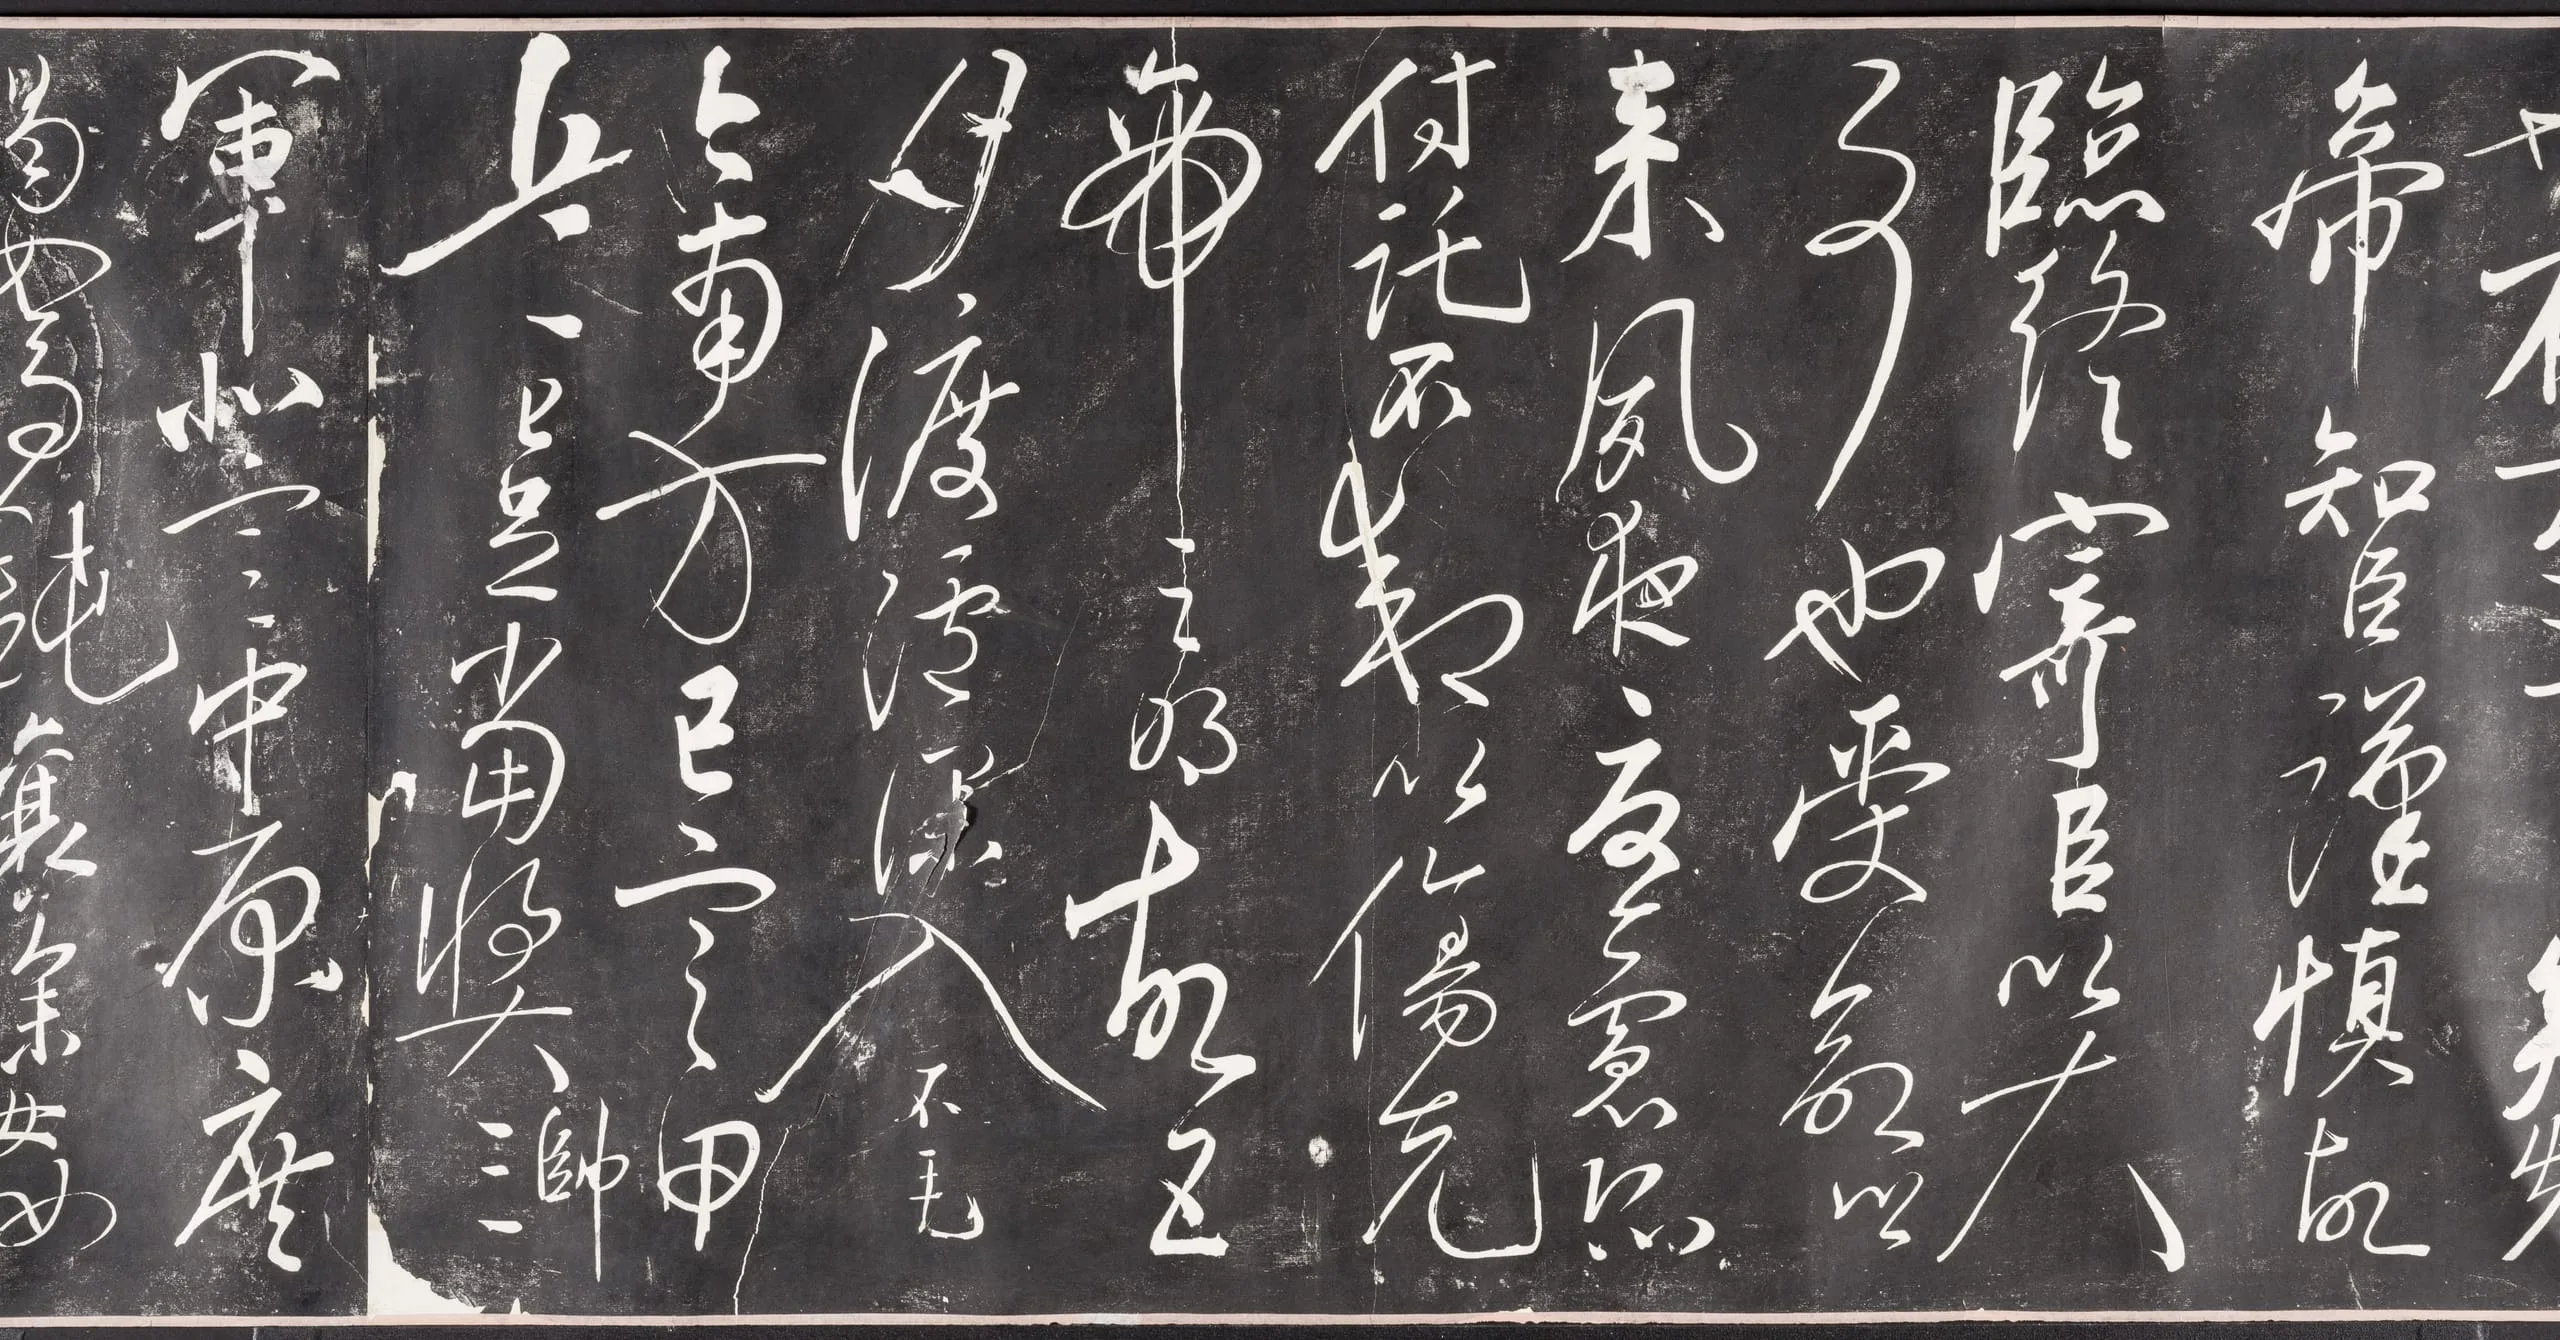 先
帝知臣謹慎故
臨終寄臣以大
事也受命以
來夙夜憂慮恐
付託不效以傷先
帝之明故五
月渡瀘深入不毛
今南方已定甲
兵已足當獎帥三
軍北定中原庶
竭駑鈍攘除姦